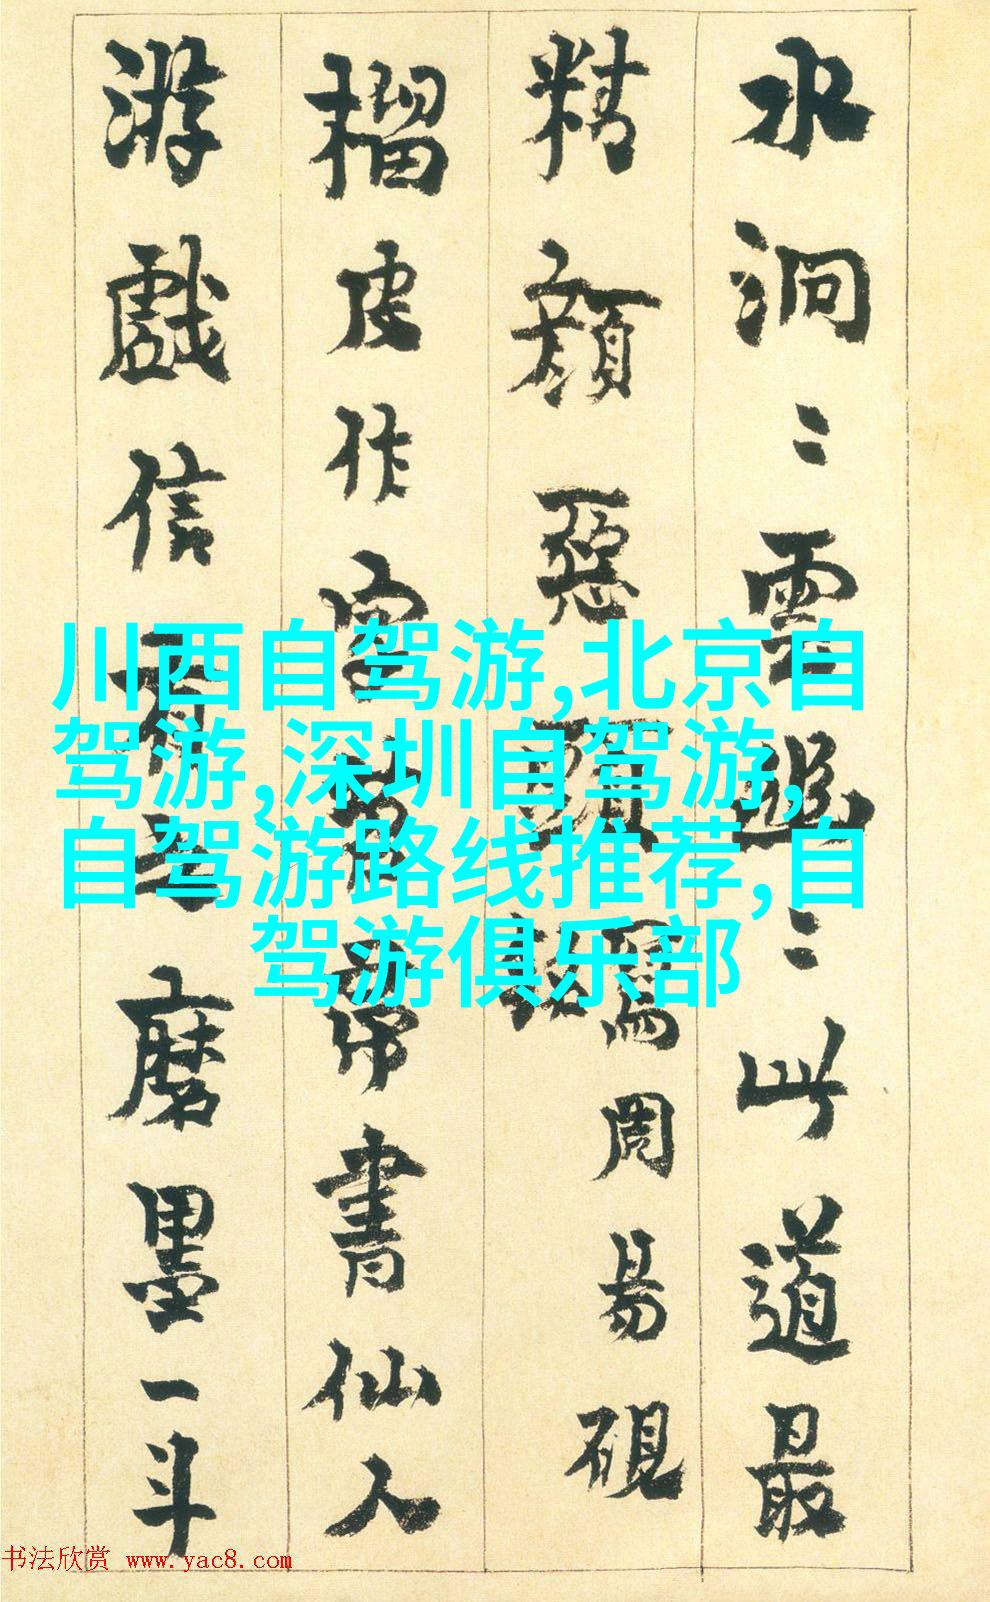 水洞〻雲〻此道最
精顏惡頭寫周易硯
榴皮作字苕帚書仙人
游戲信有之磨墨一斗
川西自驾游,北京自
驾游,深圳自驾游,
自驾游路线推荐,自
驾游俱乐部
书法欣赏 www.yac8.com